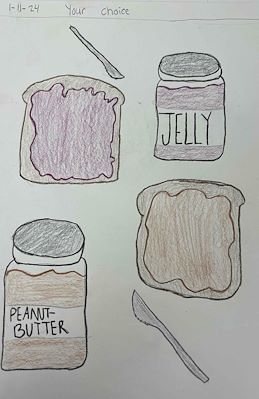 1-11-24 Your choice
JELLY
PEANUT-
BUTTER